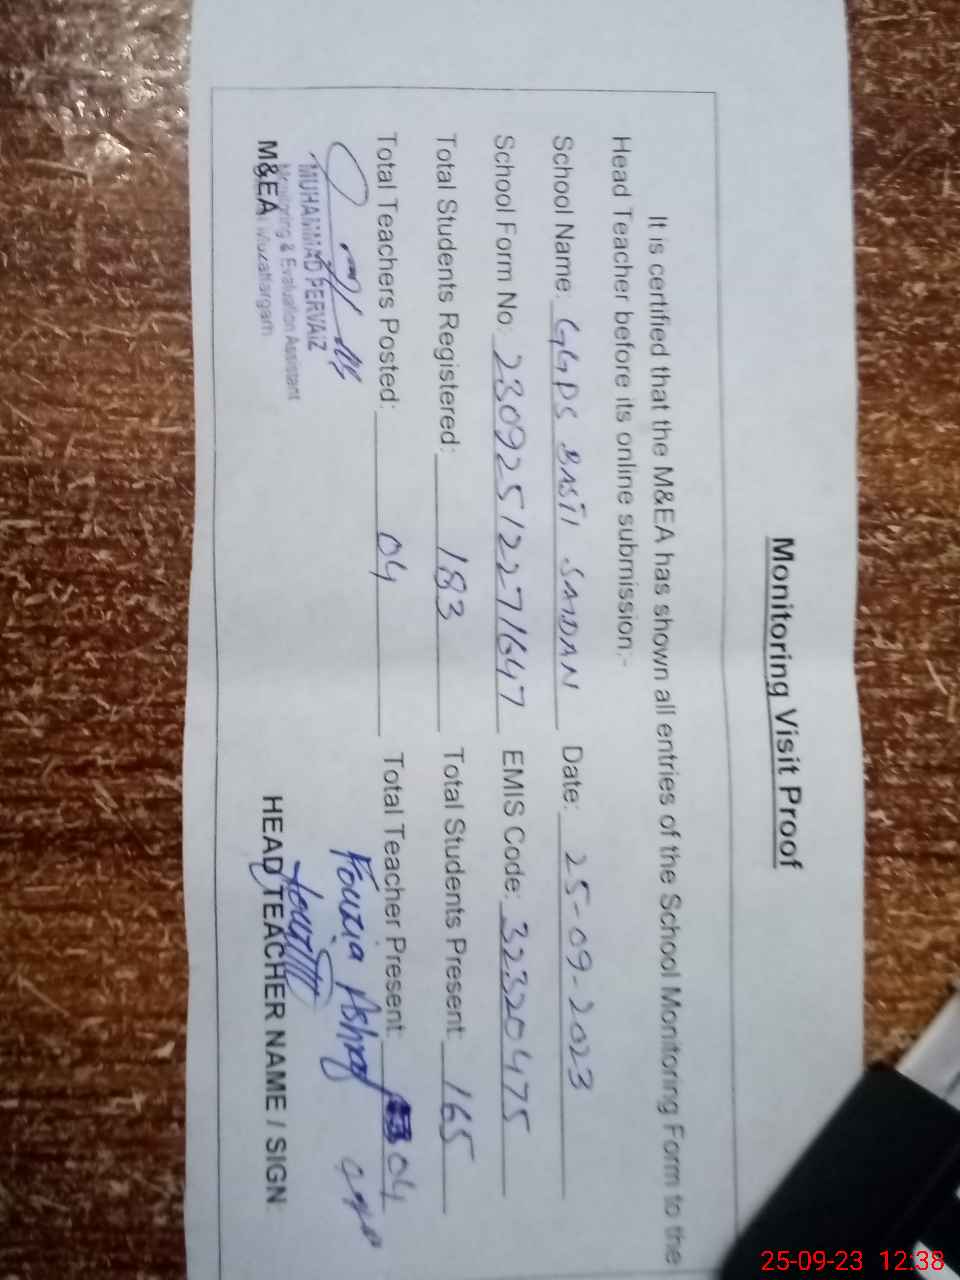 Monitoring Visit Proof
It is certified that the M&EA has shown all entries of the School Monitoring Form to the
Head Teacher before its online submission:-
School Name: GGPS BASTI SANDAN Date: 25-09-2023
School Form No: 230925122771647 EMIS Code: 32320475
Total Students Registered: 183 Total Students Present: 165
Total Teachers Posted: 04 Total Teacher Present: 04
Fouzia Ashraf
MUHAMMAD PERVAIZ
Monitoring & Evaluation Assistant
Muzaffargarh
M&EA HEAD TEACHER NAME / SIGN:
25-09-23 12:38